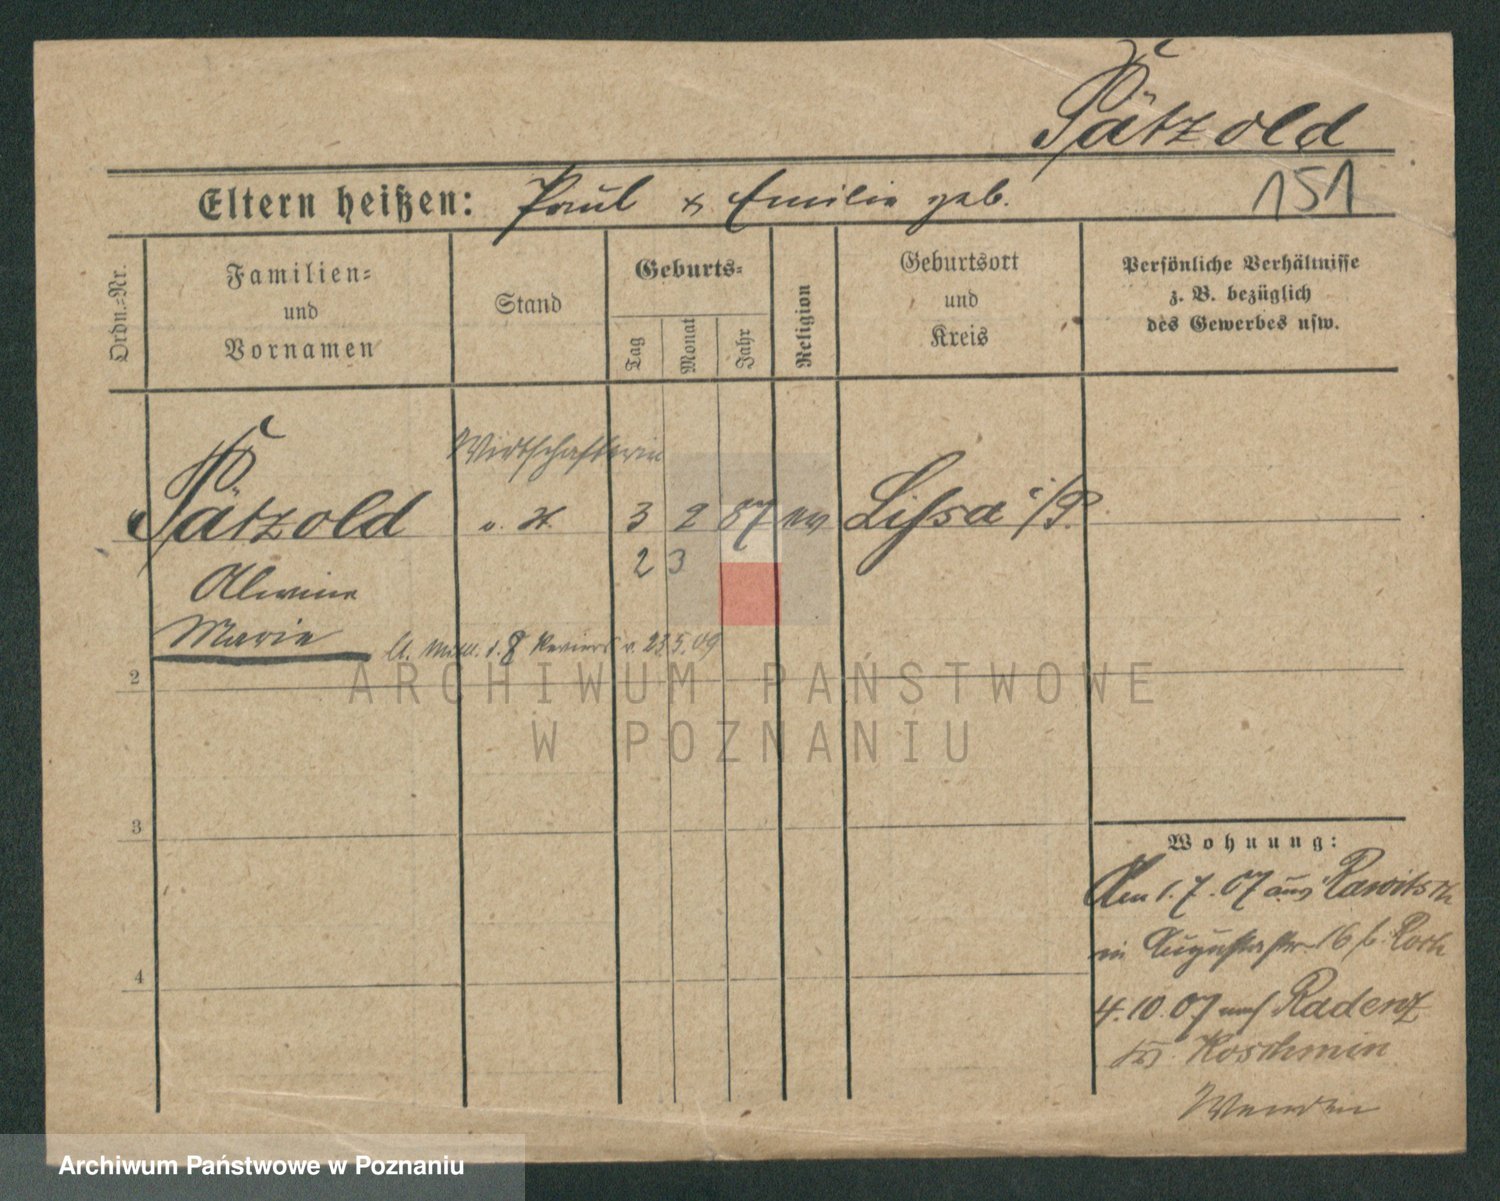 Pätzold
151
Eltern heißen: Paul & Emilie geb.
Ordn.-Nr.
Familien-
und
Vornamen
Stand
Geburts-
Tag
Monat
Jahr
Religion
Geburtsort
und
Kreis
Persönliche Verhältnisse
z. B. bezüglich
des Gewerbes usw.
Wirtschafterin
Pätzold
3 2 87 ev Lissa i/P.
2 3
Alwine
Marie
lt. Mittl. d. 8 Reviers v. 23.5.09
2
3
4
Wohnung:
Am 1.7.07 aus Rawitsch
in Augustastr. 16 b.
4.10.07 nach Radenz
Krs Koschmin
Wenden
ARCHIWUM PAŃSTWOWE
W POZNANIU
Archiwum Państwowe w Poznaniu